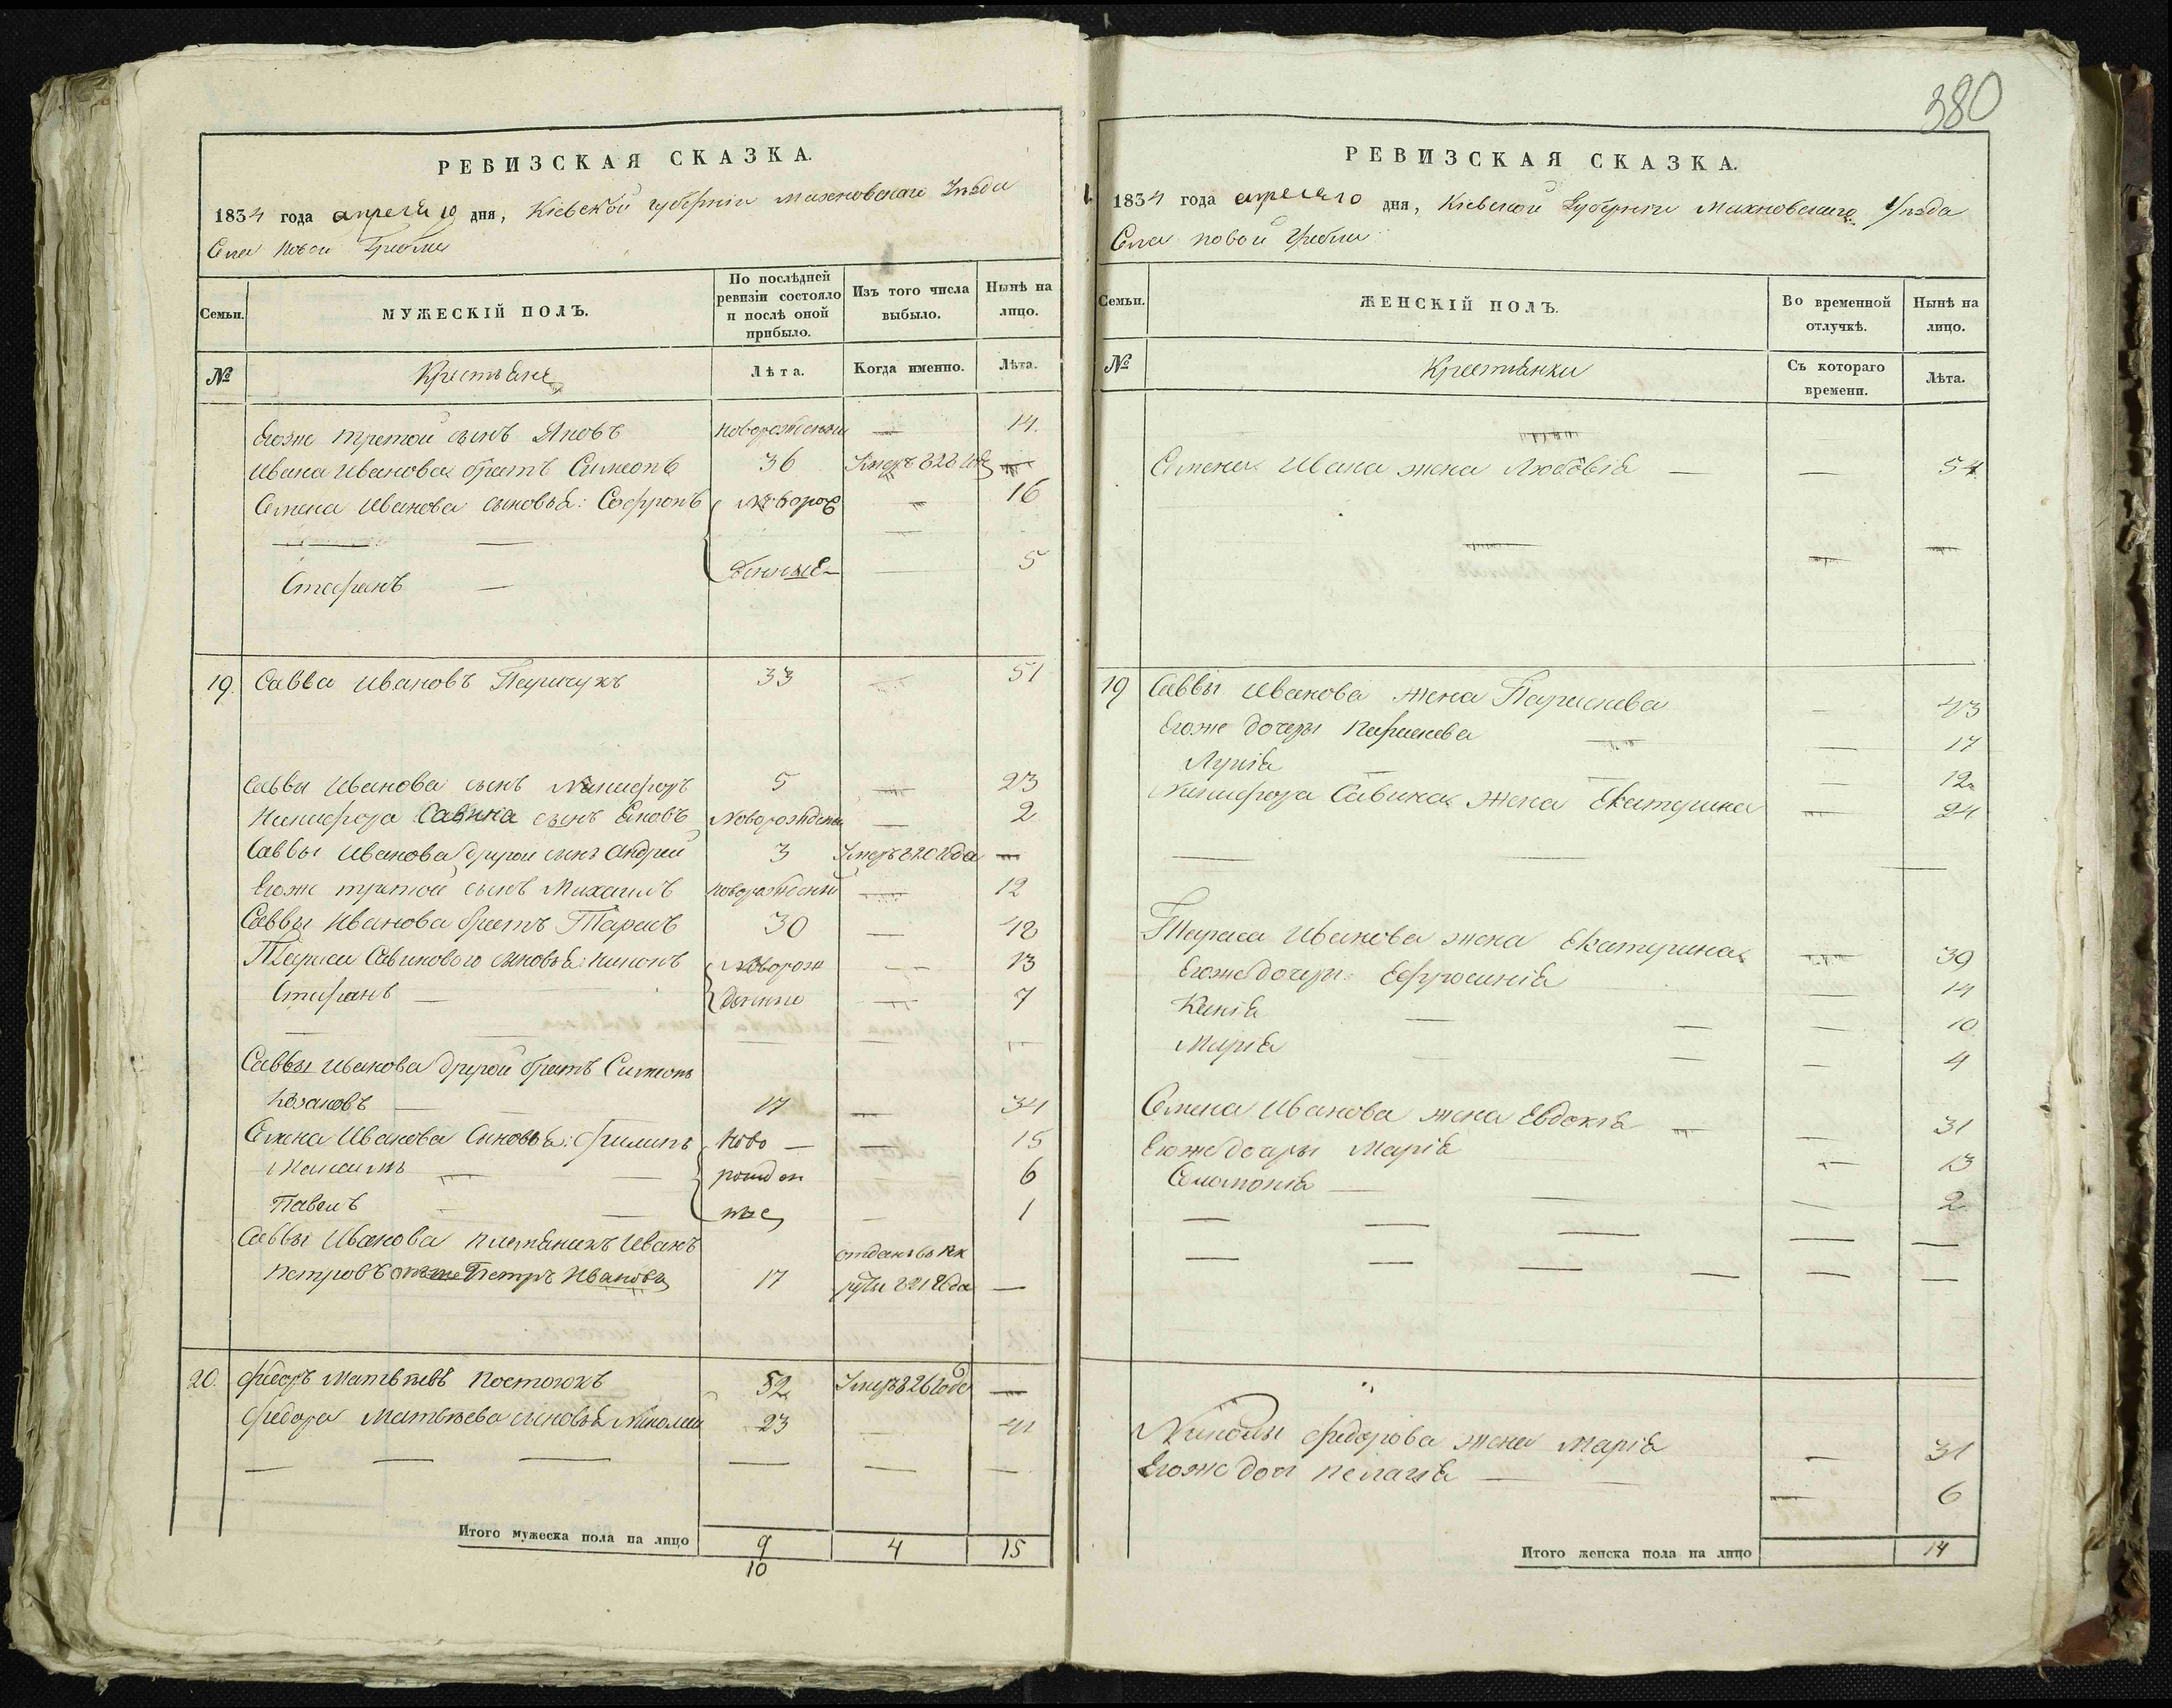 380
РЕВИЗСКАЯ СКАЗКА.
1834 года апреля 10 дня, Кіевской губерніи Махновскаго Уѣзда
Села Новой Гребли
Семьи.
МУЖЕСКІЙ ПОЛЪ.
По послѣдней ревизіи состояло и послѣ оной прибыло.
Изъ того числа выбыло.
Нынѣ на лицо.
№
Крестьяне
Лѣта.
Когда именно.
Лѣта.
Егоже третой сынъ Яковъ новорожденный — 14.
Ивана Иванова братъ Симеонъ 36 Умеръ 828 года —
Семена Иванова сыновья: Софронъ новорож — 16
Стефанъ — денные — 5
19. Савва Ивановъ 33 — 51
Саввы Иванова сынъ Никифоръ 5 — 23
Никифора Савина сынъ Яковъ Новорожденный — 2
Саввы Иванова другой сынъ Андрей 3 Умеръ 820 года —
Егоже третой сынъ Михаилъ новорожденный — 12
Саввы Иванова братъ Тарасъ 30 — 48
Тараса сыновья: 13
Стефанъ — 7
Саввы Иванова другой братъ Симеонъ
17 — 34
Семена Иванова Сыновья: Филипъ ново — 15
Максимъ — рожден 6
Павелъ — ные — 1
Саввы Иванова племяникъ Иванъ отданъ въ рек
Петровъ Петръ Иванова 17 руты 821 года —
20. Федоръ Матвѣевъ Костюкъ 52 Умеръ 826 года —
Федора Матвѣева сыновья Николай 23 — 41
Итого мужеска пола на лицо 9 4 15
10
РЕВИЗСКАЯ СКАЗКА.
1834 года апреля 10 дня, Кіевской Губерніи Махновскаго Уѣзда
Села Новой Гребли
Семьи.
ЖЕНСКІЙ ПОЛЪ.
Во временной отлучкѣ.
Нынѣ на лицо.
№
Крестьянки
Съ котораго времени.
Лѣта.
Семена Ивана жена Любовія — — 54
19 Саввы Иванова жена Параскева — 43
Егоже дочеры Параскева — 17
— 12
Никифора Савина жена Екатерина — 24
Тараса Иванова жена Екатерина — 39
Егоже дочеры: Ефросинія — 14
Ксенія — 10
Марія — 4
Семена Иванова жена Евдокія — 31
Егоже дочеры Марія — 13
Соломонія — 2
Николы Федорова жена Марія — 31
Егоже доч Пелагія — 6
Итого женска пола на лицо 14